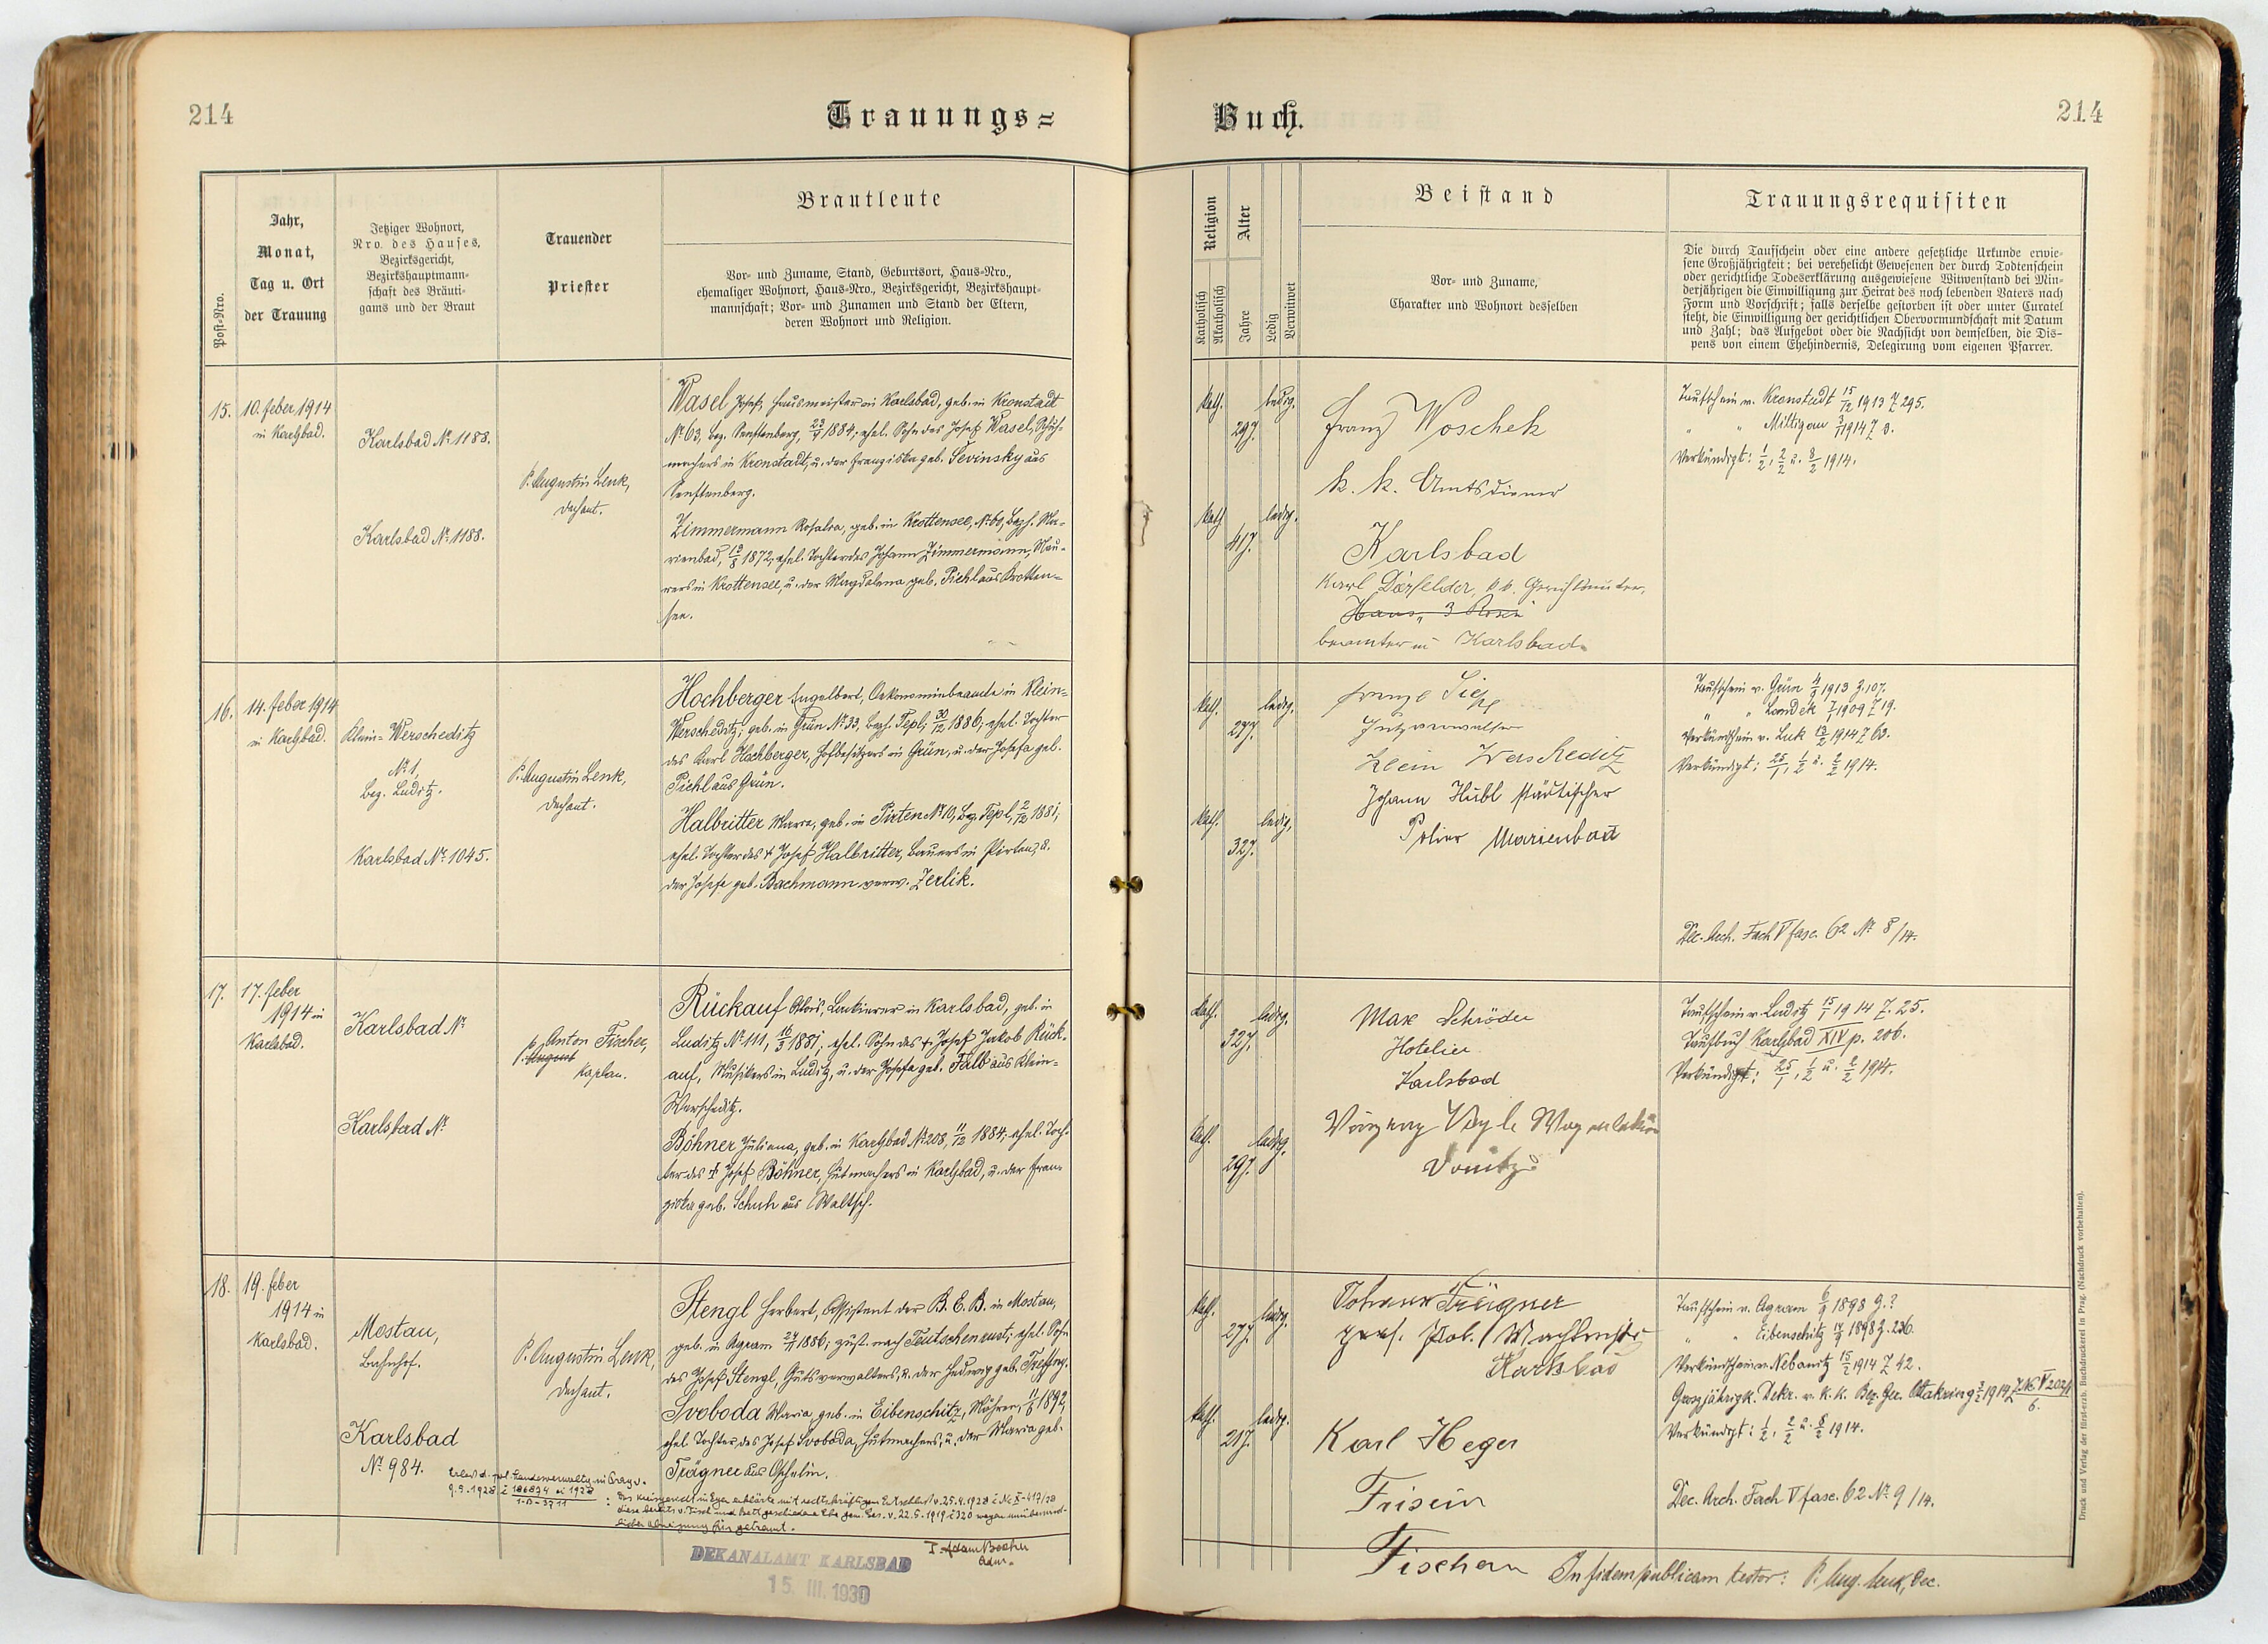 214
Trauungs=
Post-Nro.
Jahr,
Monat,
Tag u. Ort
der Trauung
Jetziger Wohnort,
Nro. des Hauses,
Bezirksgericht,
Bezirkshauptmann-
schaft des Bräuti-
gams und der Braut
Trauender
Priester
Brautleute
Vor- und Zuname, Stand, Geburtsort, Haus-Nro.,
ehemaliger Wohnort, Haus-Nro., Bezirksgericht, Bezirkshaupt-
mannschaft; Vor- und Zunamen und Stand der Eltern,
deren Wohnort und Religion.
15.
10. feber 1914
in Karlsbad.
Karlsbad No 1188.
Karlsbad No 1188.
P. Augustin Lenk,
Dechant.
Wasel Josef, Hausmeister in Karlsbad, geb. in Kronstadt
No 63, bez. Senftenberg, 1884, ehel. Sohn des Josef Wasel, Schuh-
machers in Kronstadt, u. der Franziska geb. Sevinsky aus
Senftenberg.
Zimmermann Rosalia, geb. in Krottensee, No 60, Bezh. Ma-
rienbad, 1872, ehel. Tochter des Johann Zimmermann, Mau-
rers in Krottensee, u. der Magdalena geb. Pichl aus Krotten-
see.
16.
14. feber 1914
in Karlsbad.
Klein-Werscheditz
No 1,
Bez. Luditz.
Karlsbad No 1045.
P. Augustin Lenk,
Dechant.
Hochberger Engelbert, Oekonomiebeamte in Klein-
Werscheditz, geb. in Grün No 33, Bezh. Tepl, 30/12 1886; ehel. Tochter
des Karl Hochberger, Hofbesitzers in Grün, u. der Josefa geb.
Pichl aus Grün.
Halbritter Maria, geb. in Pirten No 10, Bez. Tepl, 2/12 1881,
ehel. Tochter des † Josef Halbritter, Bauers in Pirten, u.
der Josefa geb. Bachmann verw. Zerlik.
17.
17. feber
1914 in
Karlsbad.
Karlsbad No
Karlsbad No
P. Anton Fischer,
P. August
Kaplan.
Rückauf Alois, Lackierer in Karlsbad, geb. in
Luditz No 111, 16/3 1881; ehel. Sohn des † Josef Jakob Rück-
auf, Musikers in Luditz, u. der Josefa geb. Falb aus Klein-
Werscheditz.
Böhner Juliana, geb. in Karlsbad No 208, 11/12 1884, ehel. Toch-
ter des † Josef Böhner, Hutmachers in Karlsbad, u. der Fran-
ziska geb. Schuh aus Waltsch.
18.
19. feber
1914 in
Karlsbad.
Mostau,
Bahnhof.
Karlsbad
No 984.
P. Augustin Lenk,
Dechant.
Stengl Herbert, Assistent der B. E. B. in Mostau,
geb. in Agram 24/ 1886, zust. nach Teutschenrust; ehel. Sohn
des Josef Stengl, Gutsverwalters, u. der Hedwig geb. Treffny.
Svoboda Maria, geb. in Eibenschitz, Mähren, 1892,
ehel. Tochter des Josef Svoboda, Hutmachers, u. der Maria geb.
Trägner aus
Erlass d. pol. Landesverwaltg in Prag v.
9.9.1928 186874 ai 1928
1-B-3711
: Das Kreisgericht in Eger erklärte mit rechtskräftigem v. 25.4.1928
diese bereits v. Tisch und Bett geschiedene Ehe gem. Ges. v. 22.5.1919 320 wegen unüberwind-
licher Abneigung für getrennt.
DEKANALAMT KARLSBAD
15. III. 1930
P. Adam Becher
Adm.
Buch.
214
Religion
Katholisch
Akatholisch
Alter
Jahre
Ledig
Verwitwet
Beistand
Vor- und Zuname,
Charakter und Wohnort desselben
Trauungsrequisiten
Die durch Taufschein oder eine andere gesetzliche Urkunde erwie-
sene Großjährigkeit; bei verehelicht Gewesenen der durch Todtenschein
oder gerichtliche Todeserklärung ausgewiesene Witwenstand bei Min-
derjährigen die Einwilligung zur Heirat des noch lebenden Vaters nach
Form und Vorschrift; falls derselbe gestorben ist oder unter Curatel
steht, die Einwilligung der gerichtlichen Obervormundschaft mit Datum
und Zahl; das Aufgebot oder die Nachsicht von demselben, die Dis-
pens von einem Ehehindernis, Delegirung vom eigenen Pfarrer.
kath.
29J.
ledig.
kath.
41J.
ledig.
Franz Woschek
k. k. Amtsdiener
Karlsbad
Karl Dörfelder, k.k.
Haus „3
beamter in Karlsbad.
Taufschein v. Kronstadt 15/12 1913 Z 295.
" " Miltigau 3/1 1914 Z 3.
Verkündigt: 1/2, 2/2 u. 8/2 1914.
kath.
27J.
ledig.
kath.
32J.
ledig.
Gutsverwalter
Klein Werscheditz
Johann Hübl städtischer
Polier Marienbad
Taufschein v. Grün 4/9 1913 Z. 107.
" " Landek 1909 Z 19.
Verkündschein v. Luk 1914 Z 63.
Verkündigt: 25/1, 1/2 u. 2/2 1914.
Dec. Arch. Fach V fasc. 62 No 8/14.
kath.
32J.
ledig.
kath.
29J.
ledig.
Max Schröder
Hotelier
Karlsbad
Donitz
Taufschein v. Luditz 15/1 1914 Z. 25.
Taufbuch Karlsbad XIV p. 206.
Verkündigt: 25/1, 1/2 u. 2/2 1914.
kath.
27J.
ledig.
kath.
21J.
ledig.
Johann Trägner
pens. Pol. Wachmstr
Karlsbad
Karl Heger
Friseur
Fischern
Taufschein v. Agram 1898 Z. ?
" " Eibenschitz 1898 Z. 236.
Verkündschein v. Nebanitz 15/2 1914 Z 42.
Grosjährigk. Dekr. v. k. k. Bez. Ger. Ottakring 1914
Verkündigt: 1/2, 2/2 u. 8/2 1914.
Dec. Arch. Fach V fasc. 62 No 9/14.
In fidem publicam testor: P. Aug. Lenk, Dec.
Druck und Verlag der fürst-erzb. Buchdruckerei in Prag. (Nachdruck vorbehalten).